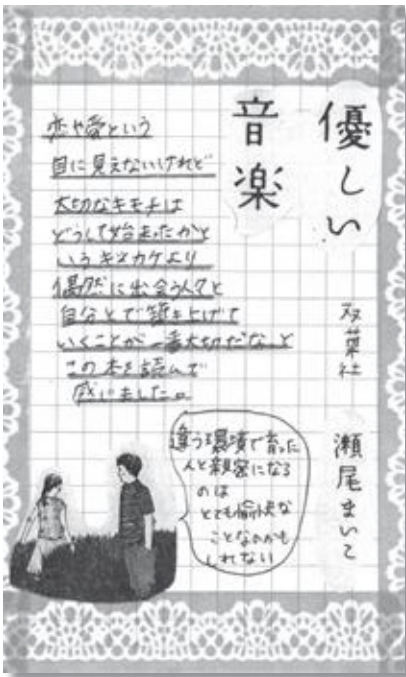 優しい
音楽
双葉社
瀬尾まいこ
恋や愛という
目に見えないけれど
大切なキモチは
どうして始まったかと
いうキッカケより
偶然に出会う人と
自分とで築き上げて
いくことが一番大切だなと
この本を読んで
感じました。
違う環境で育った
人と親密になる
のは
とても愉快な
ことなのかも
しれない